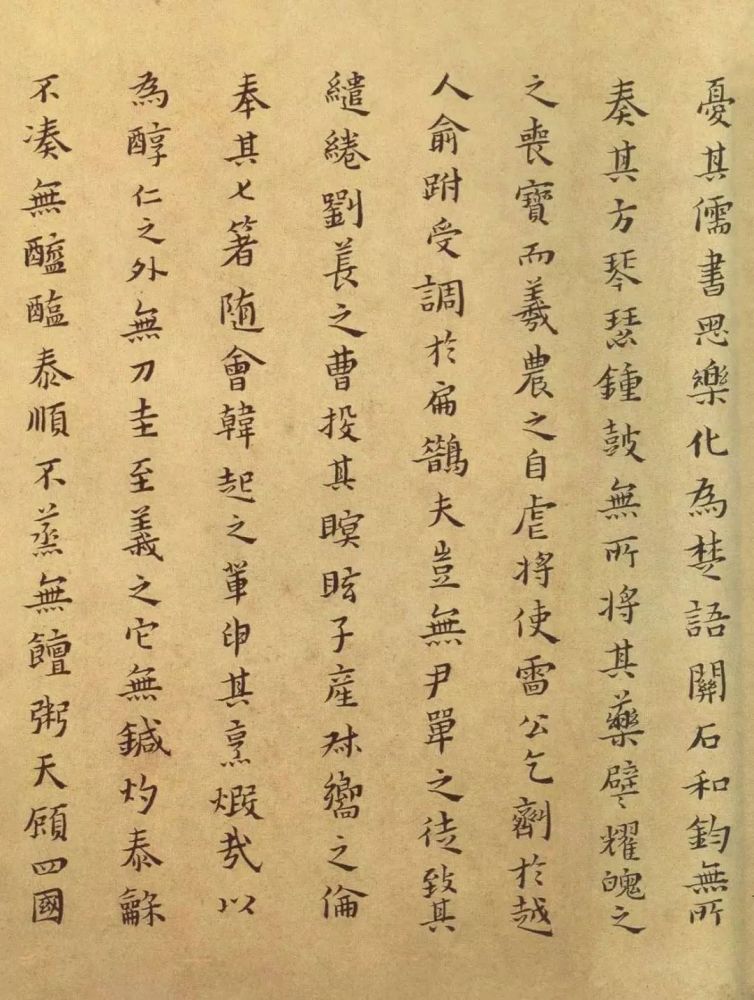 憂其儒書思樂化為楚語關石和鈞無所
奏其方琴瑟鍾鼓無所將其藥譬耀魄之
之喪寶而羲農之自虐將使雷公乞劑於越
人俞跗受調於扁鵲夫豈無尹單之徒致其
繾綣劉萇之曹投其瞑眩子產叔嚮之倫
奉其匕箸随會韓起之輩申其烹煅哉以
為醇仁之外無刀圭至義之它無鍼灼泰龢
不凑無醯醢泰順不蒸無饘粥天頋四國